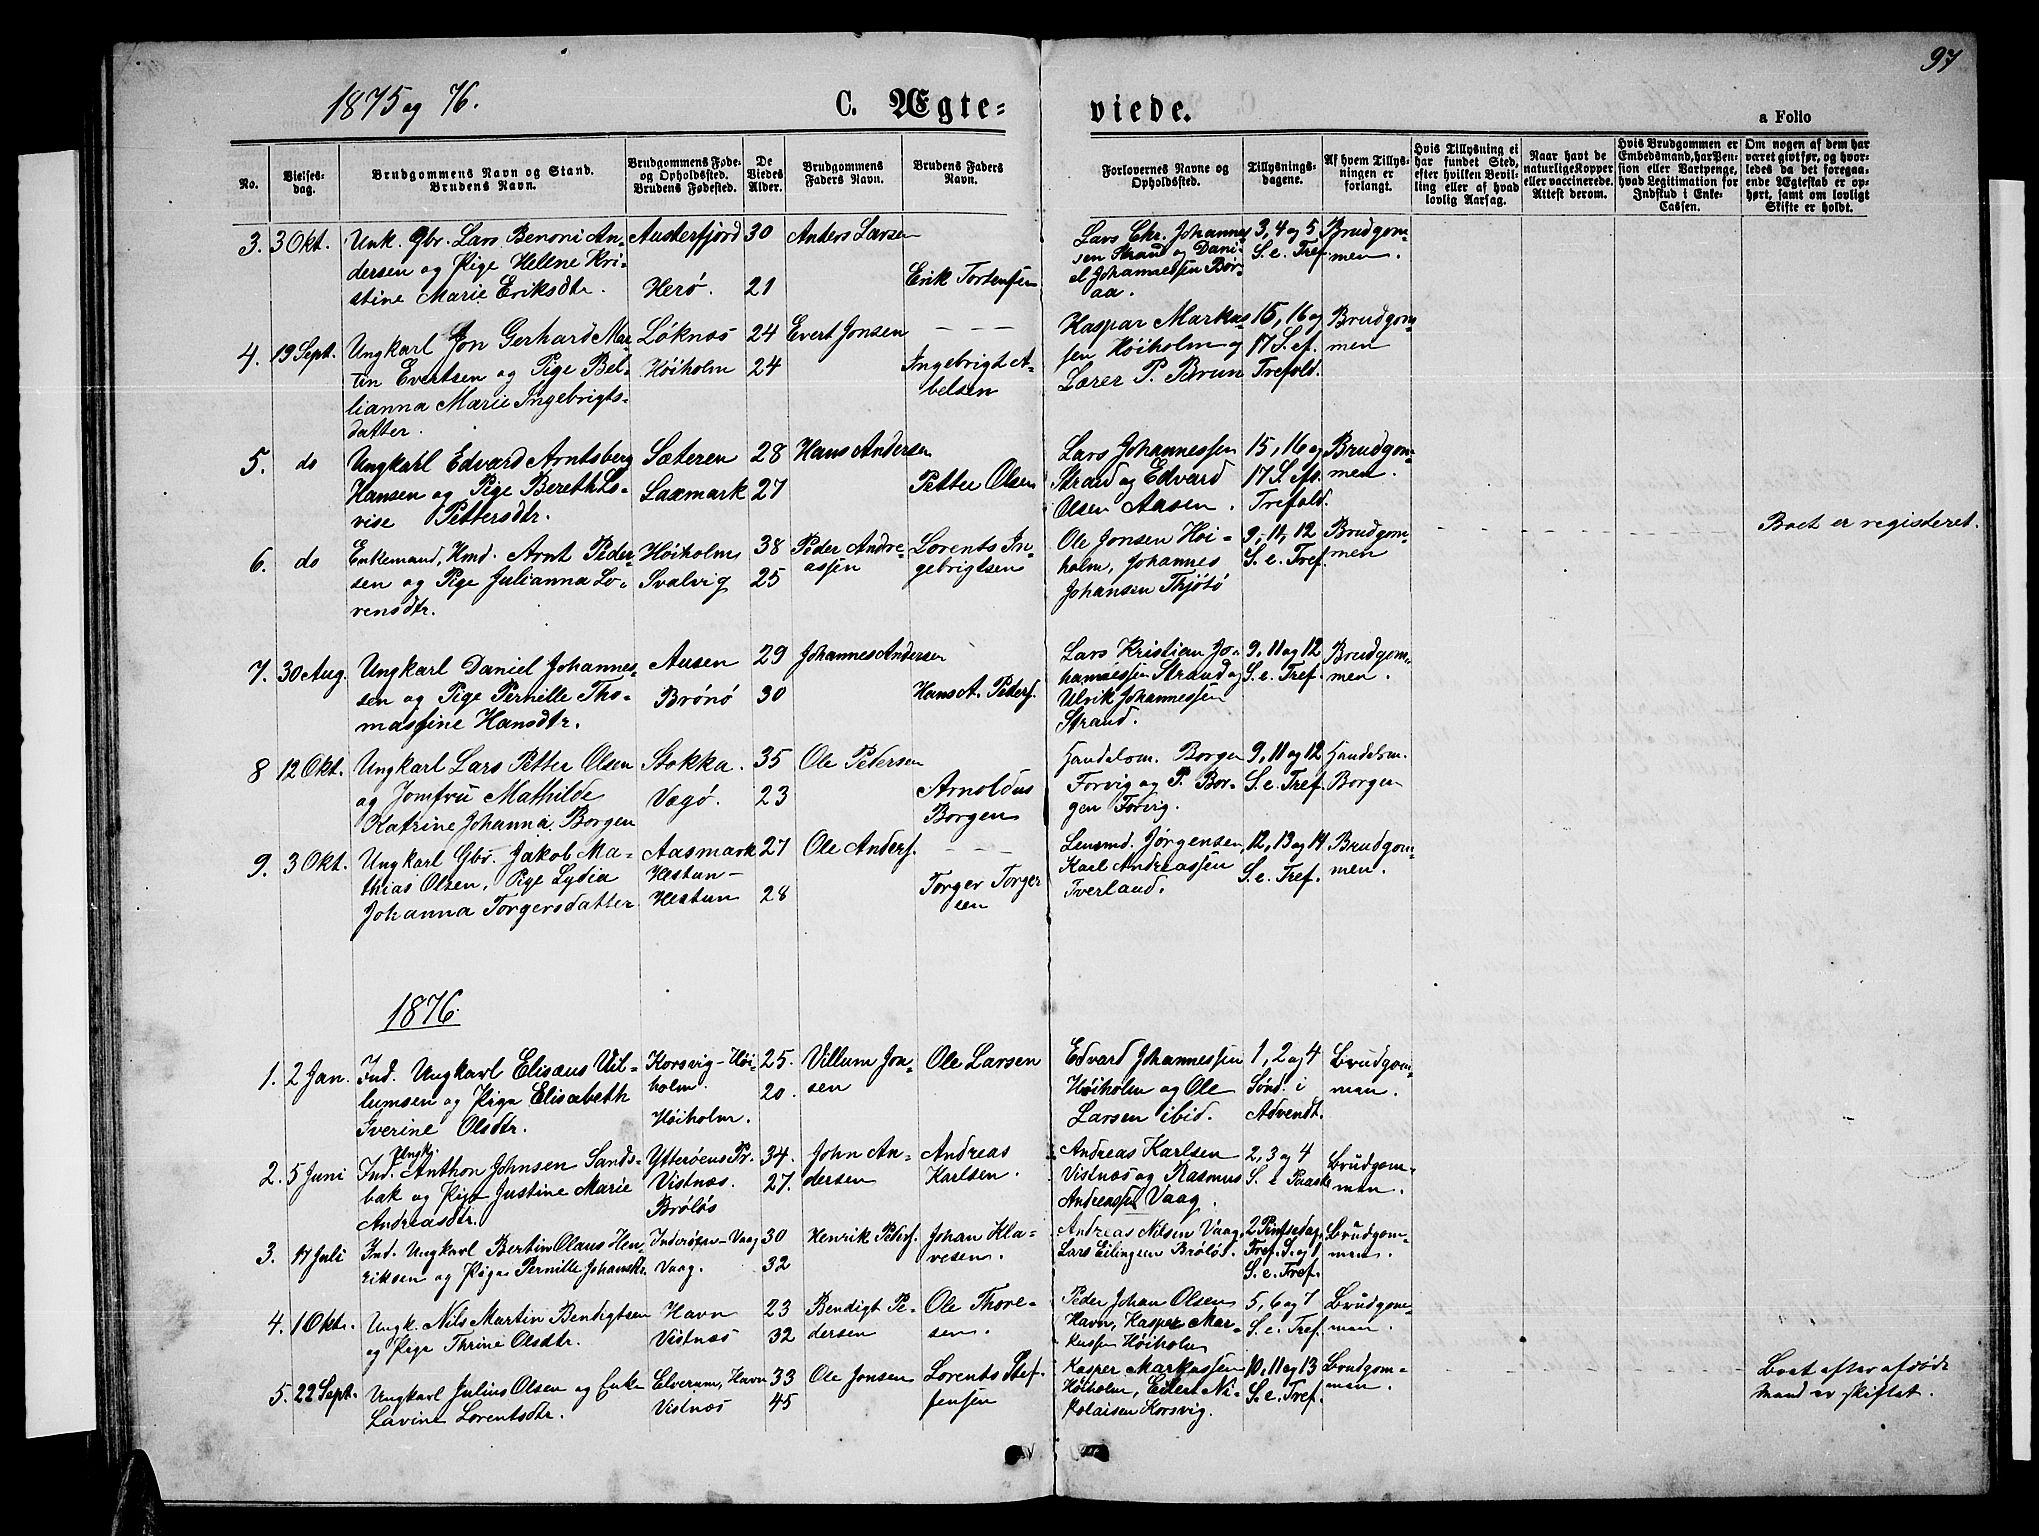 97
1875 og 76.
C. Ægte=
viede.
a Folio
No.
Vielses-
dag.
Brudgommens Navn og Stand.
Brudens Navn.
Brudgommens Føde-
og Opholdssted.
Brudens Fødested.
De
Viedes
Alder.
Brudgommens
Faders Navn.
Brudens Faders
Navn.
Forlovernes Navne og
Opholdssted.
Tillysnings-
dagene.
Af hvem Tillys-
ningen er
forlangt.
Hvis Tillysning ei
har fundet Sted,
efter hvilken Bevil-
ling eller af hvad
lovlig Aarsag.
Naar havt de
naturlige Kopper
eller vaccinerede.
Attest derom.
Hvis Brudgommen er
Embedsmand, har Pen-
sion eller Vartpenge,
hvad Legitimation for
Indskud i Enke-
Cassen.
Om nogen af dem har
været givt før, og hvor-
ledes da det foregaa-
ende Ægteskab er op-
hørt, samt om lovligt
Skifte er holdt.
3. 3 Okt.
Unk. Gbr. Lars Benoni An-
dersen og Pige Hellene Kri-
stine Marie Eriksdtr.
Austerfjord
Herö.
30
21
Anders Larsen
Erik Tortensen
Lars Chr. Johannes
sen Strand og Dani-
el Johannessen Bör-
aa.
3, 4 og 5
S. e. Tref.
Brudgom-
men.
4. 19 Sept.
Ungkarl Jon Gerhard Mar-
tin Evertsen og Pige Bel-
lianna Marie Ingebrigts-
datter.
Löknæs
Höiholm
24
24
Evert Jonsen
Ingebrigt A-
belsen
Kaspar Markus-
sen Höiholm og
Lærer P. Brun
15, 16 og
17 S. ef.
Trefold.
Brudgom
men
5. do
Ungkarl Edvard Arntsberg
Hansen og Pige Bereth Lo-
vise Pettersdtr.
Sæteren
Laxmark
28
27
Hans Andersen
Petter Olsen
Lars Johannessen
Strand og Edvard
Olsen Aasen.
15, 16 og
17 S. ef.
Trefold.
Brudgom-
men.
6. do
Enkemand, Hmd. Arnt Peder-
sen og Pige Julianna Lo-
rensdtr.
Höiholm
Svalvig
38
25
Peder Andre-
assen
Lorents In-
gebrigtsen
Ole Jonsen Höi-
holm, Johannes
Johansen Thjötö
9, 11, 12
S. e. Tref.
Brudgom-
men
Boet er registeret.
7. 30 Aug.
Ungkarl Daniel Johannes-
sen og Pige Pernille Tho-
massine Hansdtr.
Ausen
Brönö
29
30
Johannes Andersen
Hans A. Peders.
Lars Kristian Jo-
hannessen Strand og
Ulrik Johannessen
Strand.
9, 11 og 12
S. e. Tref.
Brudgom-
men.
8 12 Okt.
Ungkarl Lars Petter Olsen
og Jomfru Mathilde
Katrine Johanna Borgen
Stokka.
Vegö.
35
23
Ole Petersen
Arnoldus
Borgen
Handelsm. Borgen
Forvig og P. Bor-
gen Forvig.
9, 11 og 12
S. e. Tref.
Handelsm.
Borgen
9. 3 Okt.
Ungkarl Gbr. Jakob Ma-
thias Olsen, Pige Lydia
Johanna Torgersdatter
Aasmark
Hestun-
Hestun
27
28
Ole Anders.
Torger Torger
sen
Lensmd. Jørgensen,
Karl Andreassen
Tverland.
12, 13 og 14
S. e. Tref.
Brudgom-
men.
1876.
1. 2 Jan.
Ind. Ungkarl Elisæus Vil-
lumsen og Pige Elisabeth
Iverine Olsdtr.
Korsvig - Höi-
holm.
Höiholm.
25.
20.
Villum Jon-
sen
Ole Larsen
Edvard Johannessen
Höiholm og Ole
Larsen ibid.
1, 2 og 4
Sönd. i
Advendt.
Brudgom-
men.
2. 5 Juni
Ungk.
Ind. Anthon Johnsen Sands-
bak og Pige Justine Marie
Andreasdtr.
Ytteröens Pr.
Vistnæs.
Brölös
34.
27.
John An-
dersen
Andreas
Karlsen.
Andreas Karlsen
Vistnæs og Rasmus
Andreassen Vaag.
2, 3 og 4
S. e Paaske
Brudgom-
men.
3. 17 Juli
Ind. Ungkarl Bertin Olaus Hen-
riksen og Pige Pernille Johansdtr.
Inderöen - Vaag
Vaag.
30
32
Henrik Peders.
Johan Kla-
vesen.
Andreas Nilsen Vaag,
Lars Eilingsen Brölös.
2 Pintsedag,
Tref. S. og 1
S. e. Tref.
Brudgom-
men.
4. 1 Oktr.
Ungk. Nils Martin Bendigtsen
og Pige Thrine Olsdtr.
Havn
Vistnæs
23
32
Bendigt Pe-
dersen
Ole Thore-
sen.
Peder Johan Olsen
Havn, Kasper Mar-
kussen Höiholm
5, 6 og 7
S. e. Tref.
Brudgom-
men.
5. 22 Sept.
Ungkarl Julius Olsen og Enke
Lavine Lorentsdtr.
Elverum, Havn
Vistnæs
33
45
Ole Jonsen
Lorents Stef-
fensen
Kasper Markussen
Höiholm, Eden Ni-
kolaisen Korsvig.
10, 11 og 13
S. e. Tref.
Brudgom-
men.
Boet efter afdöde
Mand er skiftet.